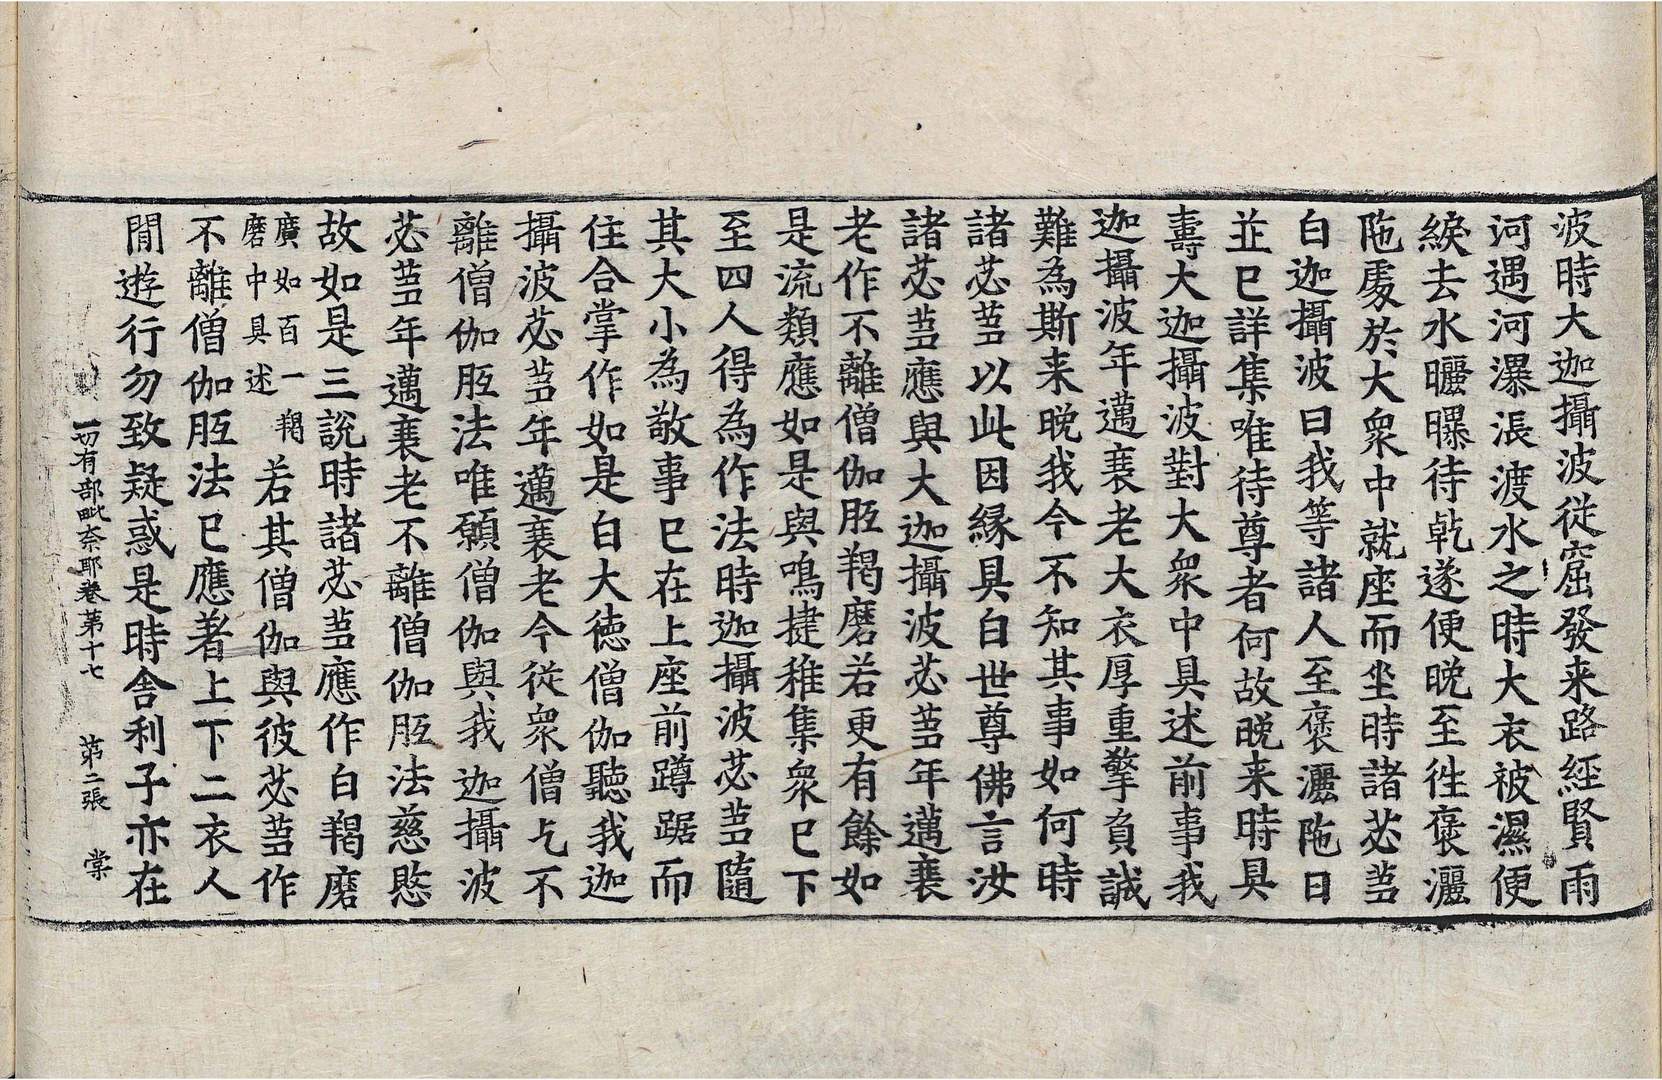 波時大迦攝波從窟發来路經賢雨
河遇河瀑漲渡水之時大衣被濕便
綟去水曬曝待乹遂便晚至徃褒灑
陁處於大衆中就座而坐時諸苾芻
白迦攝波曰我等諸人至褒灑陁日
並已詳集唯待尊者何故晚来時具
壽大迦攝波對大衆中具述前事我
迦攝波年邁衰老大衣厚重擎負誠
難為斯来晚我今不知其事如何時
諸苾芻以此因緣具白世尊佛言汝
諸苾芻應與大迦攝波苾芻年邁衰
老作不離僧伽胝羯磨若更有餘如
是流類應如是與鳴揵稚集衆已下
至四人得為作法時迦攝波苾芻隨
其大小為敬事已在上座前蹲踞而
住合掌作如是白大徳僧伽聽我迦
攝波苾芻年邁衰老今從衆僧乞不
離僧伽胝法唯願僧伽與我迦攝波
苾芻年邁衰老不離僧伽胝法慈愍
故如是三說時諸苾芻應作白羯磨
廣如百一羯磨中具述若其僧伽與彼苾芻作
不離僧伽胝法已應著上下二衣人
閒遊行勿致疑惑是時舍利子亦在
一切有部毗奈耶卷第十七 苐二張 棠